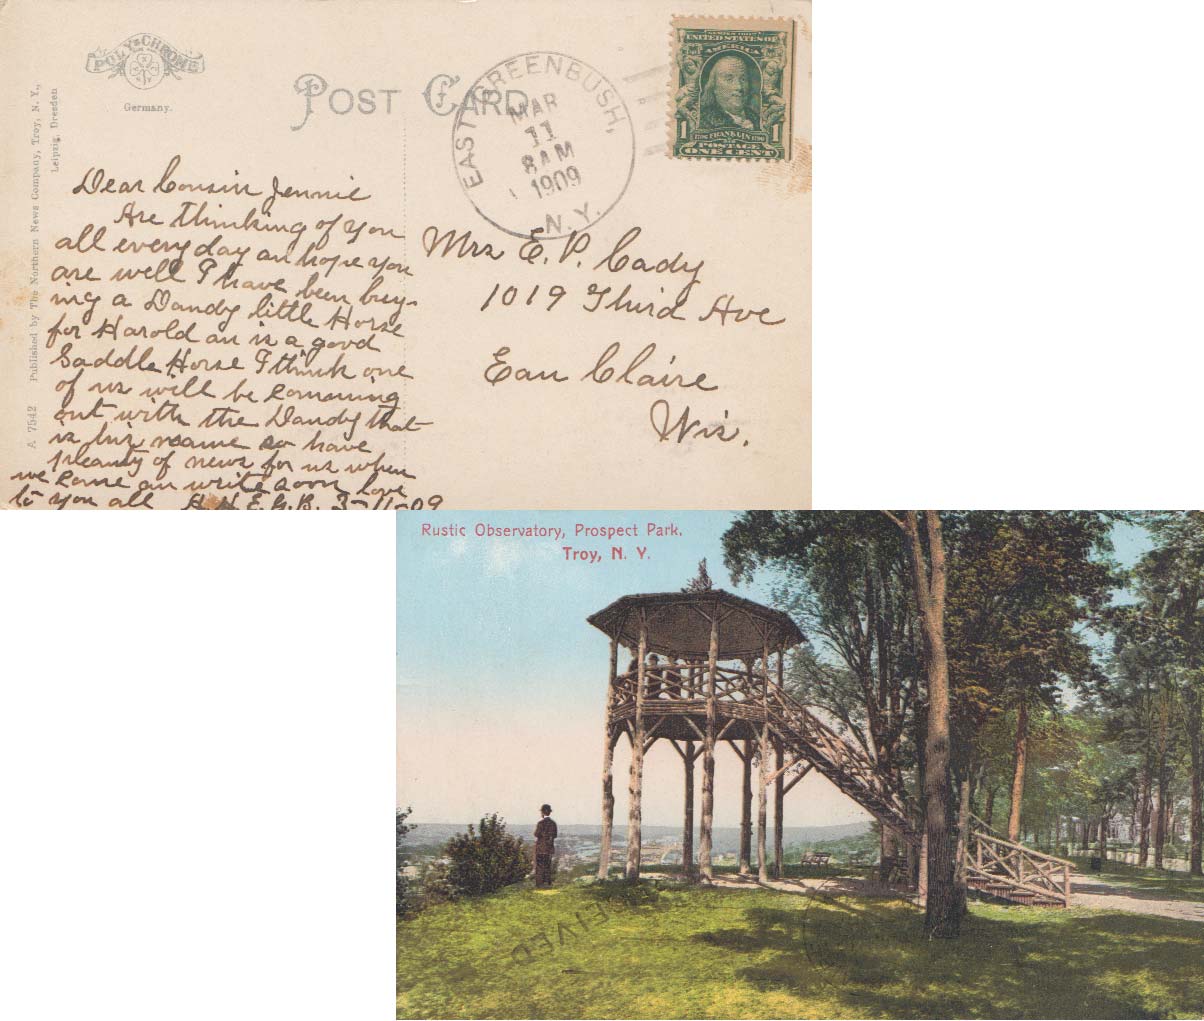 POLY-CHROME
Germany.
A 7542 Published by The Northern News Company, Troy, N. Y.,
Leipzig, Dresden
POST CARD
EAST GREENBUSH,
MAR
11
8 AM
1909
N. Y.
SERIES 1902
UNITED STATES OF
AMERICA
1 1706 FRANKLIN 1790 1
POSTAGE
ONE CENT
Dear Cousin Jennie
Are thinking of you
all everyday an hope you
are well I have been buy-
ing a Dandy little Horse
for Harold an is a good
Saddle Horse I think one
of us will be comming
out with the Dandy that
is his name so have
pleanty of news for us when
we come an write soon love
to you all H. H. E. G. B. 3-11-09
Mrs E. P. Cady
1019 Third Ave
Eau Claire
Wis.
Rustic Observatory, Prospect Park.
Troy, N. Y.
EIVED